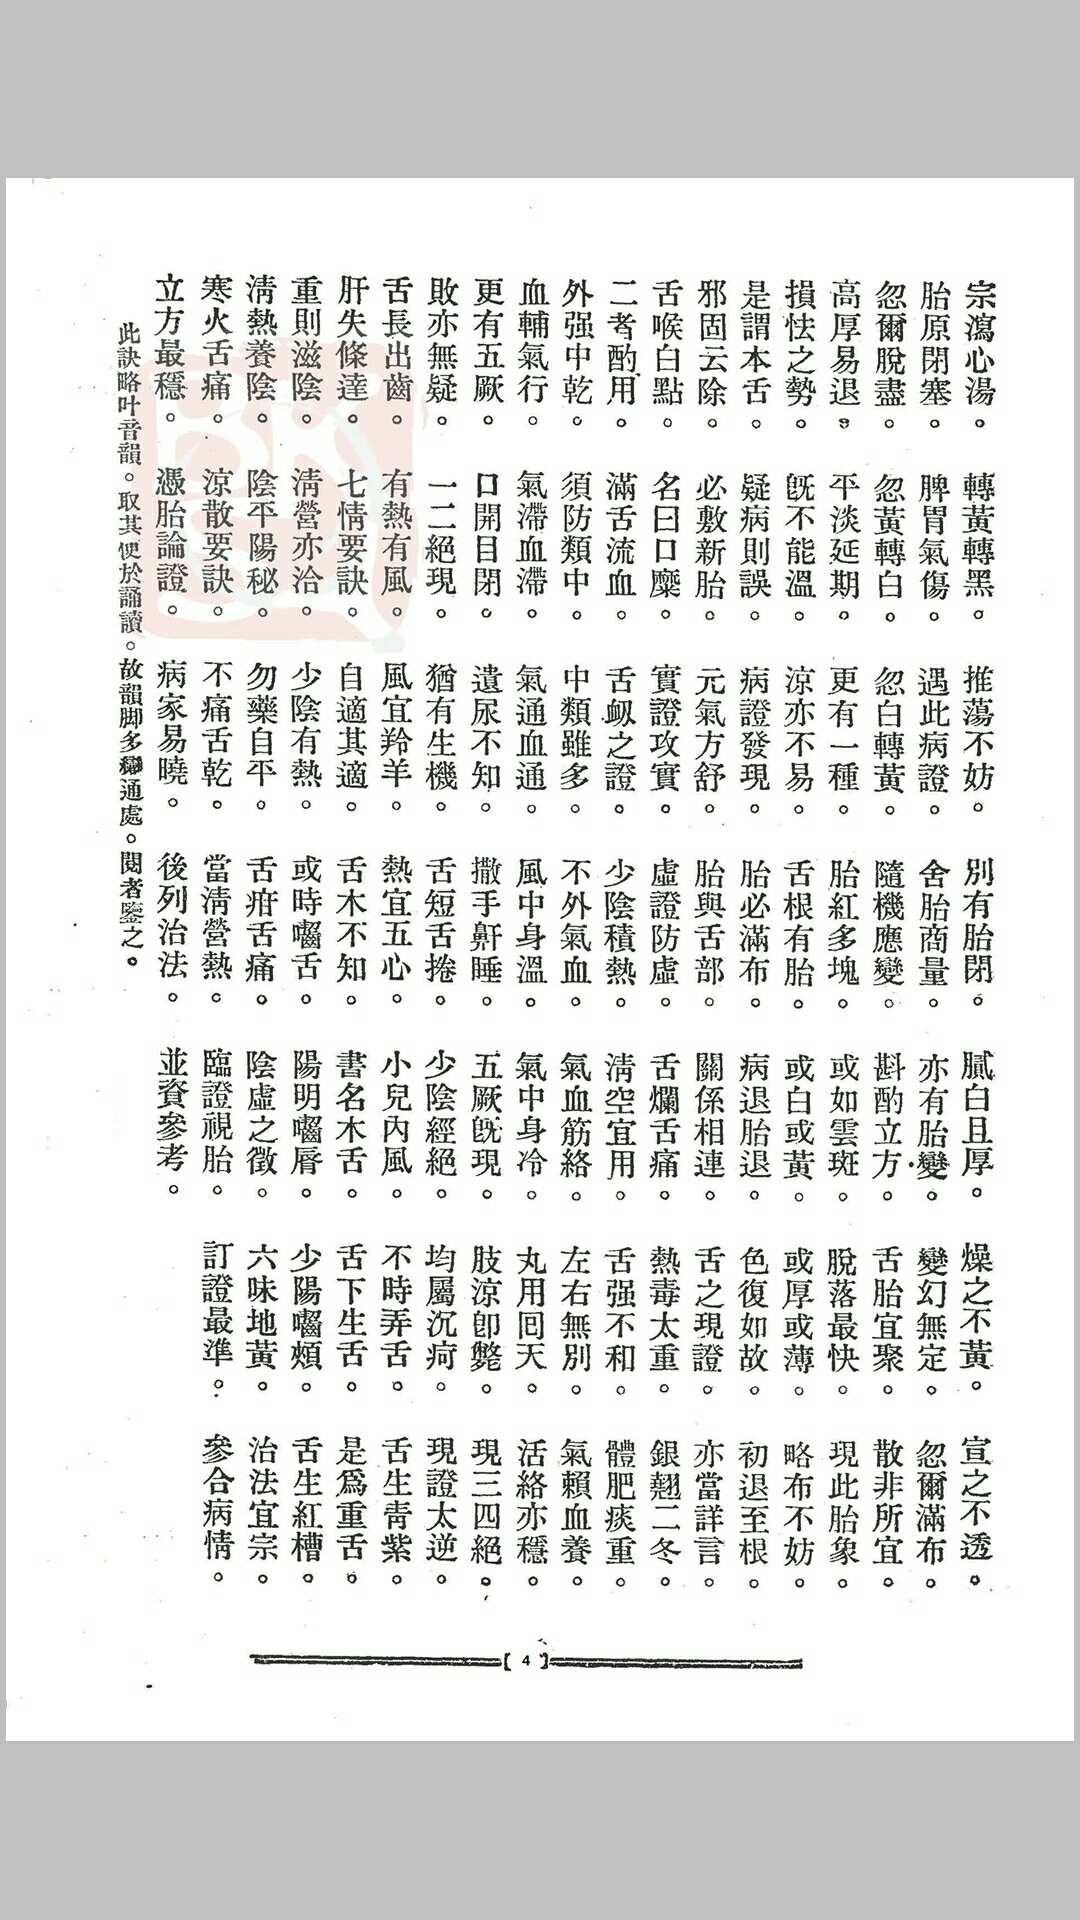 宗瀉心湯。轉黃轉黑。推蕩不妨。別有胎閉。膩白且厚。燥之不黃。宣之不透。
胎原閉塞。脾胃氣傷。遇此病證。舍胎商量。亦有胎變。變幻無定。忽爾滿布。
忽爾脫盡。忽黃轉白。忽白轉黃。隨機應變。斟酌立方。舌胎宜聚。散非所宜。
高厚易退。平淡延期。更有一種。胎紅多塊。或如雲斑。脫落最快。現此胎象。
損怯之勢。旣不能溫。涼亦不易。舌根有胎。或白或黃。或厚或薄。略布不妨。
是謂本舌。疑病則誤。病證發現。胎必滿布。病退胎退。色復如故。初退至根。
邪固云除。必敷新胎。元氣方舒。胎與舌部。關係相連。舌之現證。亦當詳言。
舌喉白點。名曰口糜。實證攻實。虛證防虛。舌爛舌痛。熱毒太重。銀翹二冬。
二者酌用。滿舌流血。舌衂之證。少陰積熱。淸空宜用。舌强不和。體肥痰重。
外强中乾。須防類中。中類雖多。不外氣血。氣血筋絡。左右無別。氣賴血養。
血輔氣行。氣滯血滯。氣通血通。風中身溫。氣中身冷。丸用回天。活絡亦穩。
更有五厥。口開目閉。遺尿不知。撒手鼾睡。五厥旣現。肢涼卽斃。現三四絕。
敗亦無疑。一二絕現。猶有生機。舌短舌捲。少陰經絕。均屬沉疴。現證太逆。
舌長出齒。有熱有風。風宜羚羊。熱宜五心。小兒內風。不時弄舌。舌生靑紫。
肝失條達。七情要訣。自適其適。舌木不知。書名木舌。舌下生舌。是爲重舌。
重則滋陰。淸營亦洽。少陰有熱。或時嚙舌。陽明嚙脣。少陽嚙頰。舌生紅槽。
淸熱養陰。陰平陽秘。勿藥自平。舌疳舌痛。陰虛之徵。六味地黃。治法宜宗。
寒火舌痛。涼散要訣。不痛舌乾。當淸營熱。臨證視胎。訂證最準。參合病情。
立方最穩。憑胎論證。病家易曉。後列治法。並資參考。
此訣略叶音韻。取其便於誦讀。故韻脚多變通處。閱者鑒之。
【4】